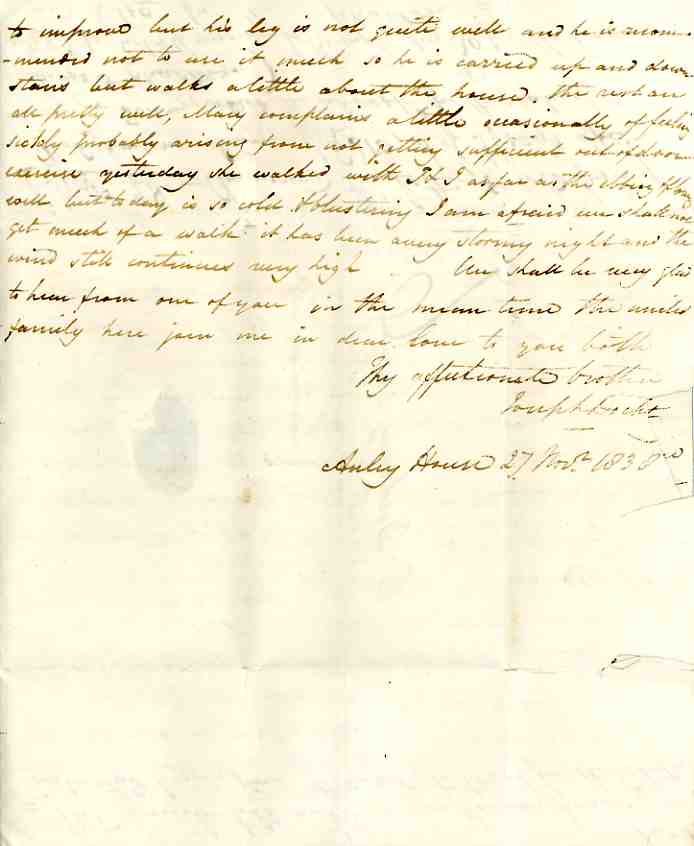 to improve but his leg is not quite well and he is recom-
-mended not to use it much so he is carried up and down
stairs but walks a little about the house. The rest are
all pretty well, Mary complains a little occasionally of feeling
sickly probably arising from not getting sufficient out of door
exercise yesterday she walked with & I as far as the ebbing & flowing
well but to day is so cold & blustering I am afraid we shall not
get much of a walk it has been a very stormy night and the
wind still continues very high We shall be very glad
to hear from one of you in the mean time the united
family here join me in dear love to you both
Thy affectionate brother
Joseph
House 27 Nov.r 1838